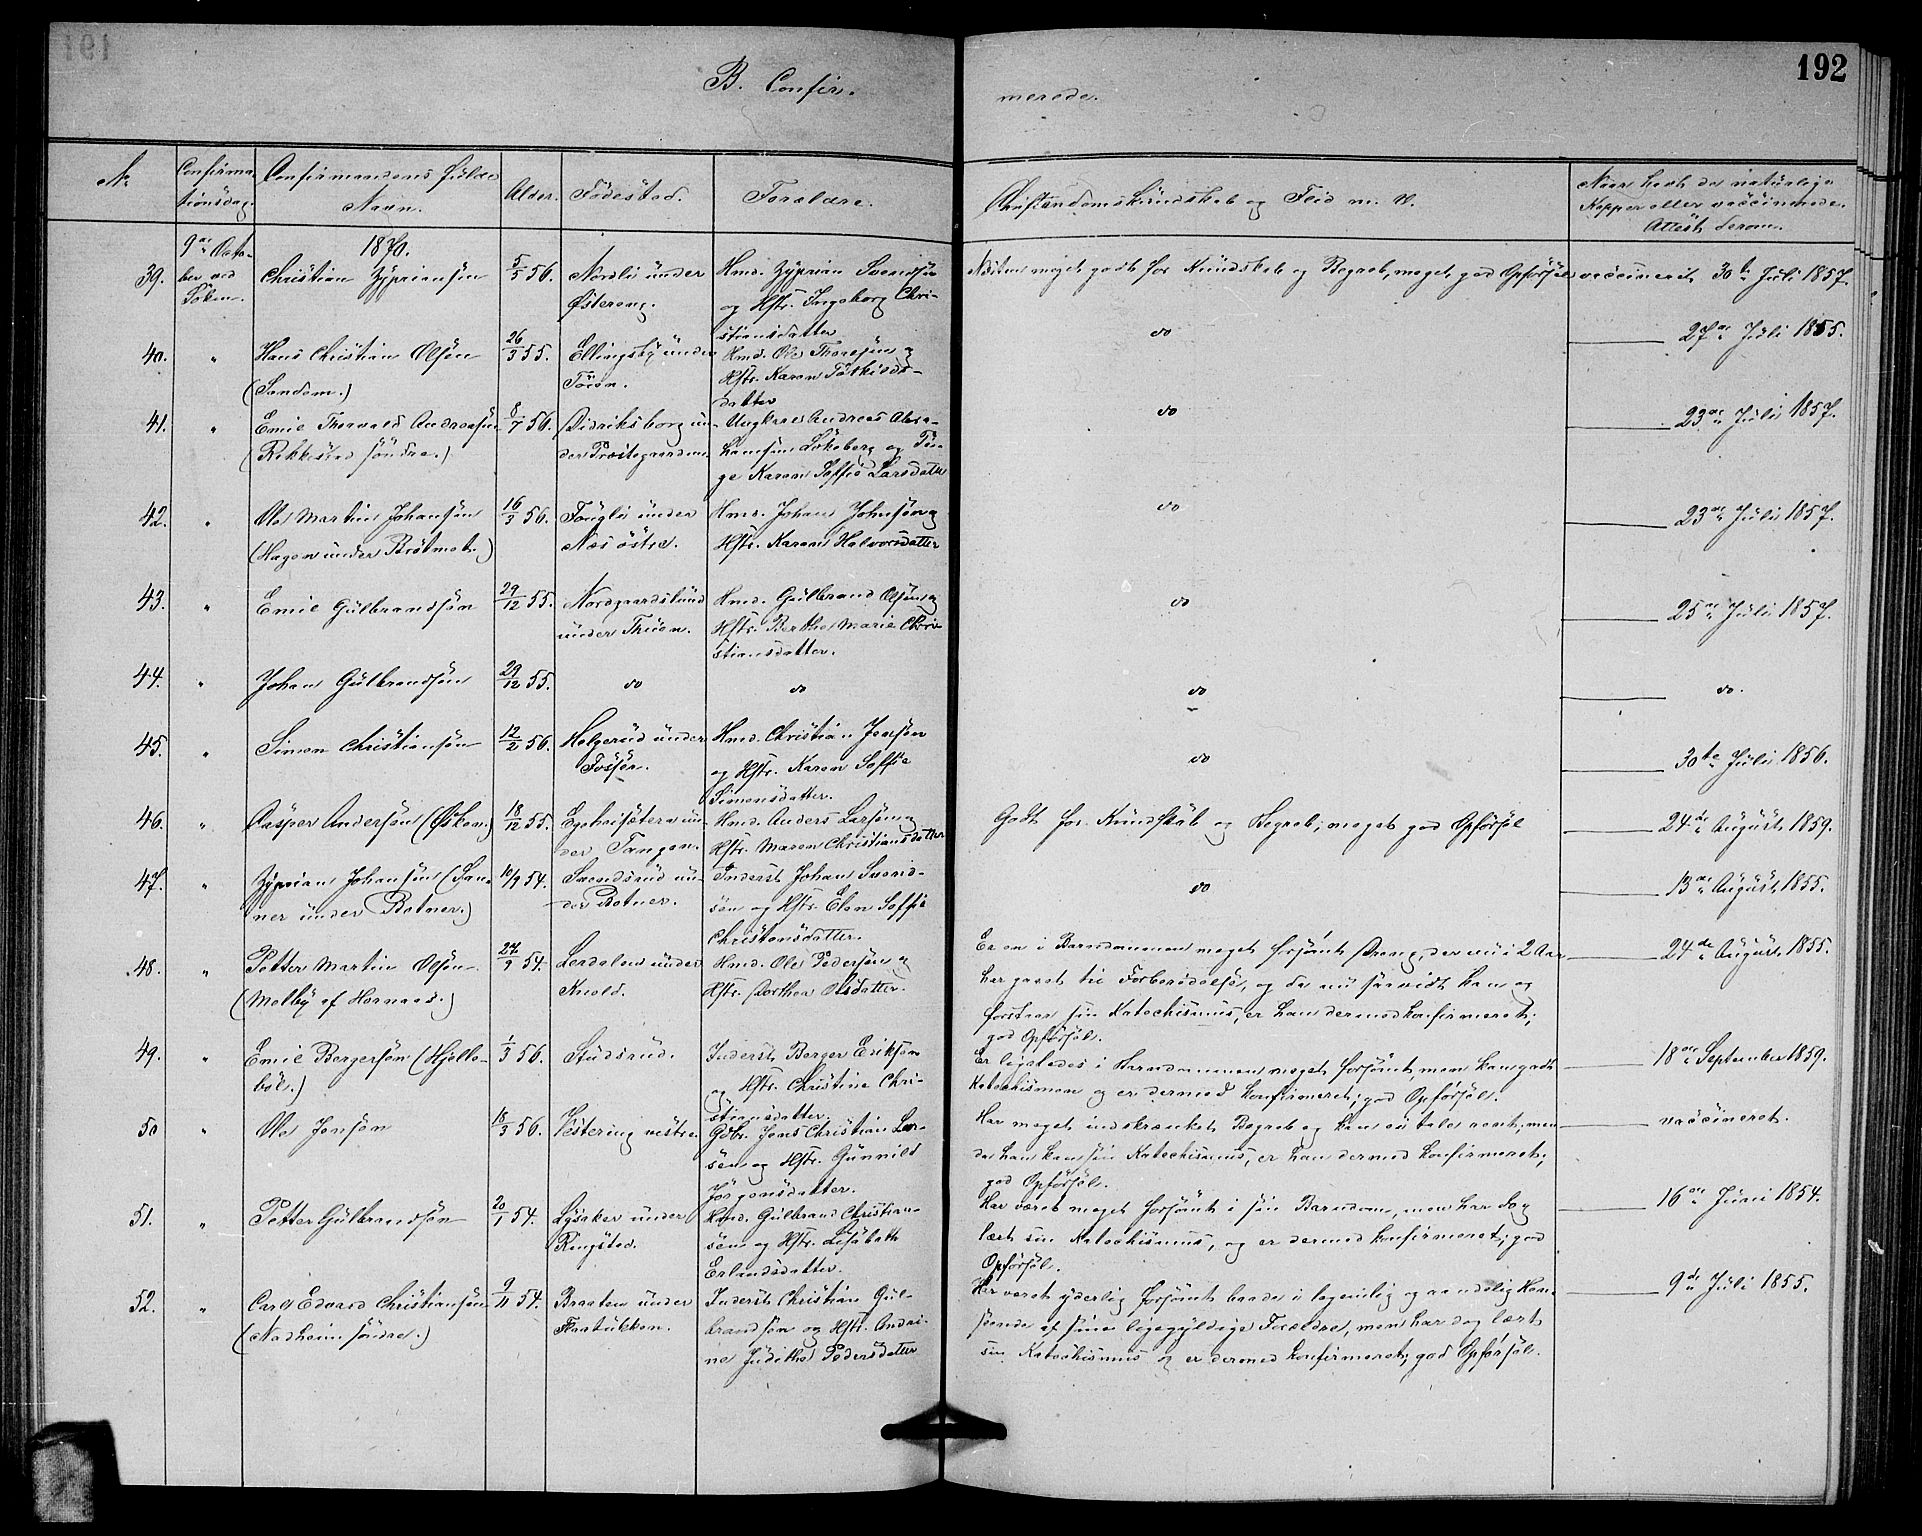 192
B. Confir.
merede.
No
Confirma-
tionsdag.
Confirmandens fulde
Navn.
Alder.
Fødested.
Forældre.
Christendomskundskab og Flid m. V.
Naar havt de naturlige
Kopper eller vaccinerede.
Attest derom.
9de Octo-
ber ved
1870.
39.
Christian Zypriansøn
5/5 56.
Nordli under
Østereng.
Hmd. Zyprian Svendsøn
og Hstr. Ingeborg Chri-
stiansdatter
meget godt for Kundskab og Begreb, meget god Opførsel
vaccineret 30te Juli 1857.
40.
"
Hans Christian Olsøn
(Sandem.)
26/3 55.
Ellingsby under
Hmd. Ole Thoresøn og
Hstr. Karen
datter
do
27de Juli 1855.
41.
"
Emil Thorvald Andreasøn
(Rakkestad søndre.)
8/7 56.
Didriksborg un-
der Præstegaarden
Ungkarl Andreas Abra-
hamsøn Løkeberg og Pi-
ge Karen Soffie Larsdatter
do
23de Juli 1857.
42.
"
Ole Martin Johansøn
(Hagen under Brotmet.)
16/3 56.
Fougli under
Næs østre.
Hmd. Johan Johnsøn og
Hstr. Karen Halvorsdatter
do
23de Juli 1857.
43.
"
Emil Gulbrandsøn
29/12 55.
Nordgaardslund
under Thuen.
Hmd. Gulbrand Olsøn og
Hstr. Berthe Marie Chri-
stiansdatter.
do
25de Juli 1857.
44.
"
Johan Gulbrandsøn
29/12 55.
do
do
do
do.
45.
"
Simen Christiansøn
12/2 56.
Holgerud under
Fosser.
Hmd. Christian Jensøn
og Hstr. Karen Soffie
Simensdatter.
do
30te Juli 1856.
46.
"
Casper Andersøn (Østen.)
18/12 55.
un-
der Tangen.
Hmd. Anders Larsøn og
Hstr. Maren Christiansdatter
Godt for Kundskab og Begreb; meget god Opførsel
24de August 1859.
47.
"
Zyprian Johansøn (San-
ner under Botner.)
10/9 54.
Svendsrud un-
der Botner.
Inderst Johan Svend-
søn og Hstr. Elen Soffie
Christensdatter.
do
13de August 1855.
48.
"
Petter Martin Olsøn
(Melby af Hornæs.)
27/9 54.
Lerdalen under
Kvold.
Hmd. Ole Pedersøn og
Hstr. Dorthea Olsdatter.
Er en i Barndommen meget forsømt Dreng, der nu i 2 Aar
har gaaet til Forberedelse, og da nu saavidt kan og
forstaar sin Katechismus, er han dermed konfirmeret;
god Opførsel.
24de August 1855.
49.
"
Emil Bergersøn (Hjelle-
bøl.)
1/3 56.
Studsrud.
Inderst Berger Eriksøn
og Hstr. Christine Chri-
stiansdatter.
Er ligeledes i Barndommen meget forsømt, men kan godt
Katechismen og er dermed konfirmeret; god Opførsel.
18de September 1859.
50
"
Ole Jensøn
18/3 56.
Vestereng vestre
Gdbr. Jens Christian Lar-
søn og Hstr. Gunnild
Jørgensdatter.
Har meget indskrænket Begreb og kan ei tale rent; men
da han kan sin Katechismus, er han dermed konfirmeret;
god Opførsel.
vaccineret.
51.
"
Petter Gulbrandsøn
20/1 54.
Lysaker under
Ringstad.
Hmd. Gulbrand Christian-
søn og Hstr. Lisabeth
Erlandsdatter.
Har været meget forsømt i sin Barndom, men har dog
lært sin Katechismus, og er dermed konfirmeret; god
Opførsel.
16de Juni 1854.
52.
"
Carl Edvard Christiansøn
(Nadheim søndre.)
9/11 54.
Braaten under
Inderst Christian Gul-
brandsøn og Hstr. Andri-
ne Judithe Pedersdatter
Har været yderlig forsømt baade i legemlig og aandelig Hen-
seende af sine ligegyldige Forældre, men har dog lært
sin Katechismus og er dermed konfirmeret; god Opførsel.
9de Juli 1855.